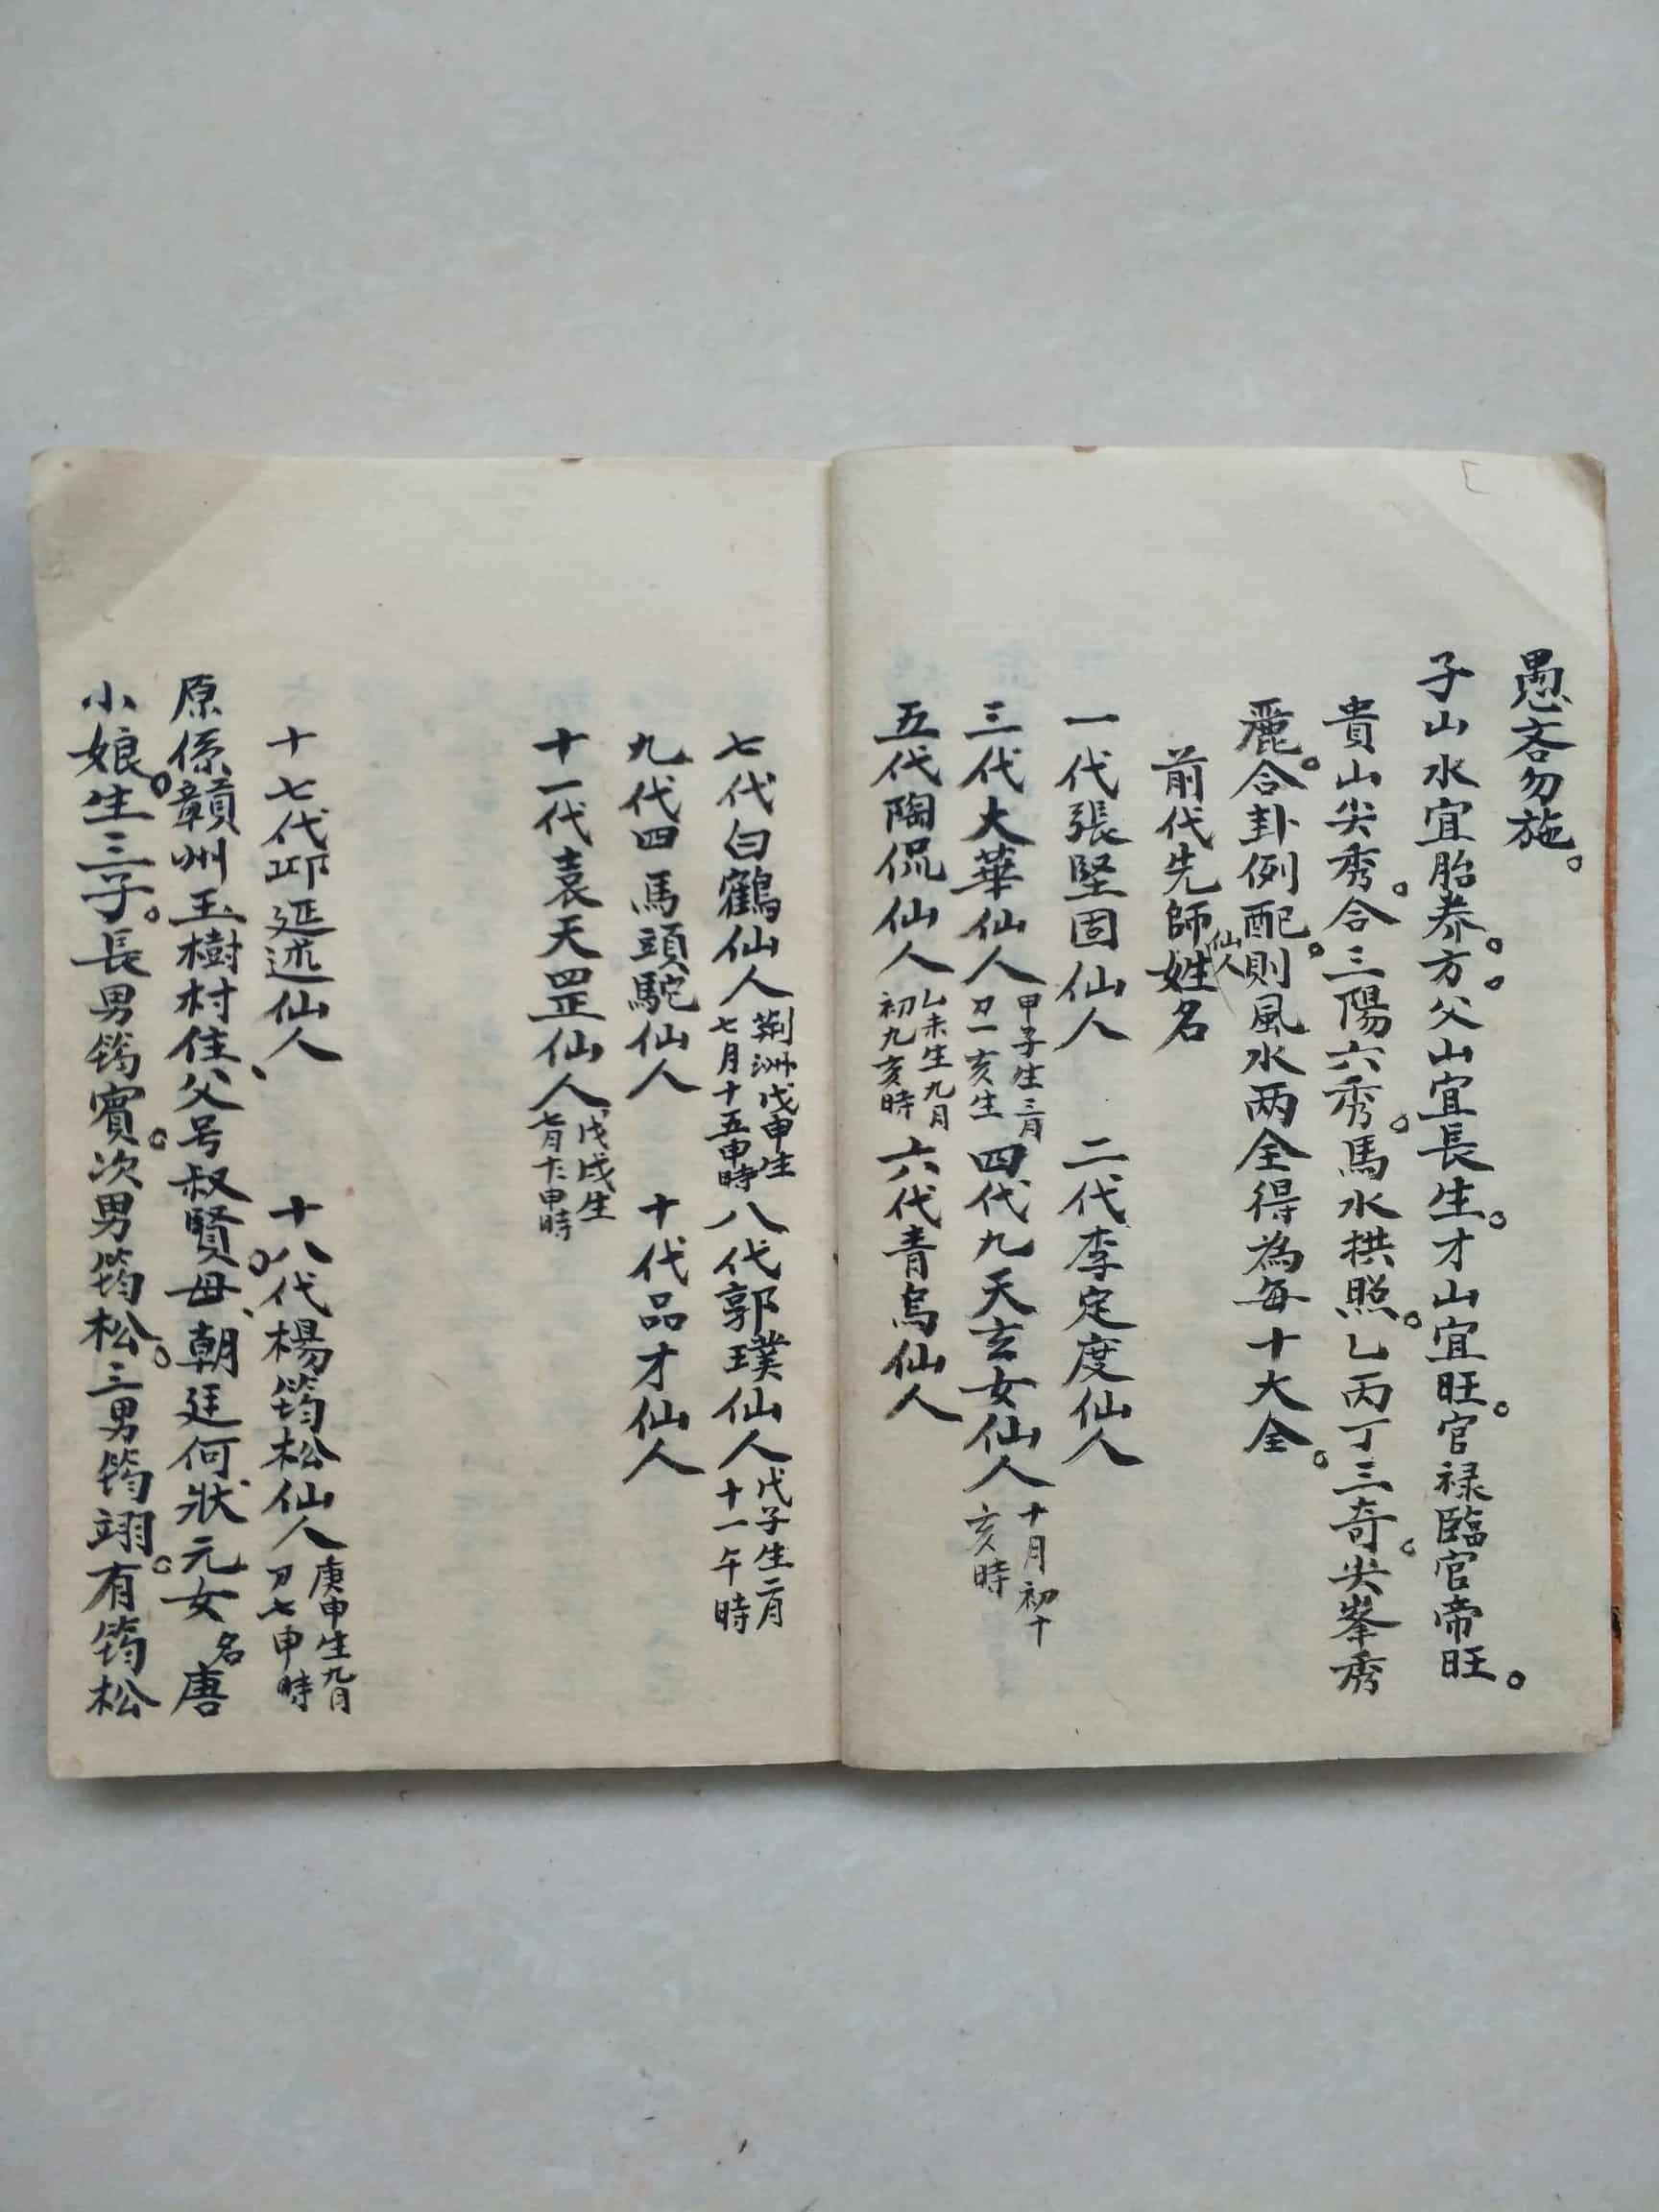 愚吝勿施。
子山水宜胎养。方。父山宜長生。才山宜旺。官禄臨官帝旺。
貴山尖秀。合三陽六秀。馬水拱照。乙丙丁三奇。尖峯秀
麗。合卦例配。則風水两全得為每十大全。
前代先師仙人姓名
一代張堅固仙人 二代李定度仙人
三代大華仙人甲子生三月刀一亥生四代九天玄女仙人十月初十亥時
五代陶侃仙人乙未生九月初九亥時六代青烏仙人
七代白鶴仙人荆洲戊申生七月十五申時八代郭璞仙人戊子生二月十一午時
九代四馬頭駝仙人 十代品才仙人
十一代袁天罡仙人戊戌生七月十申時
十七代邱延述仙人 十八代楊筠松仙人庚申生九月刀七申時
原係贛州玉樹村住、父号叔賢。母、朝廷何狀元女名唐
小娘。生三子。長男筠賓。次男筠松。三男筠翊。有筠松